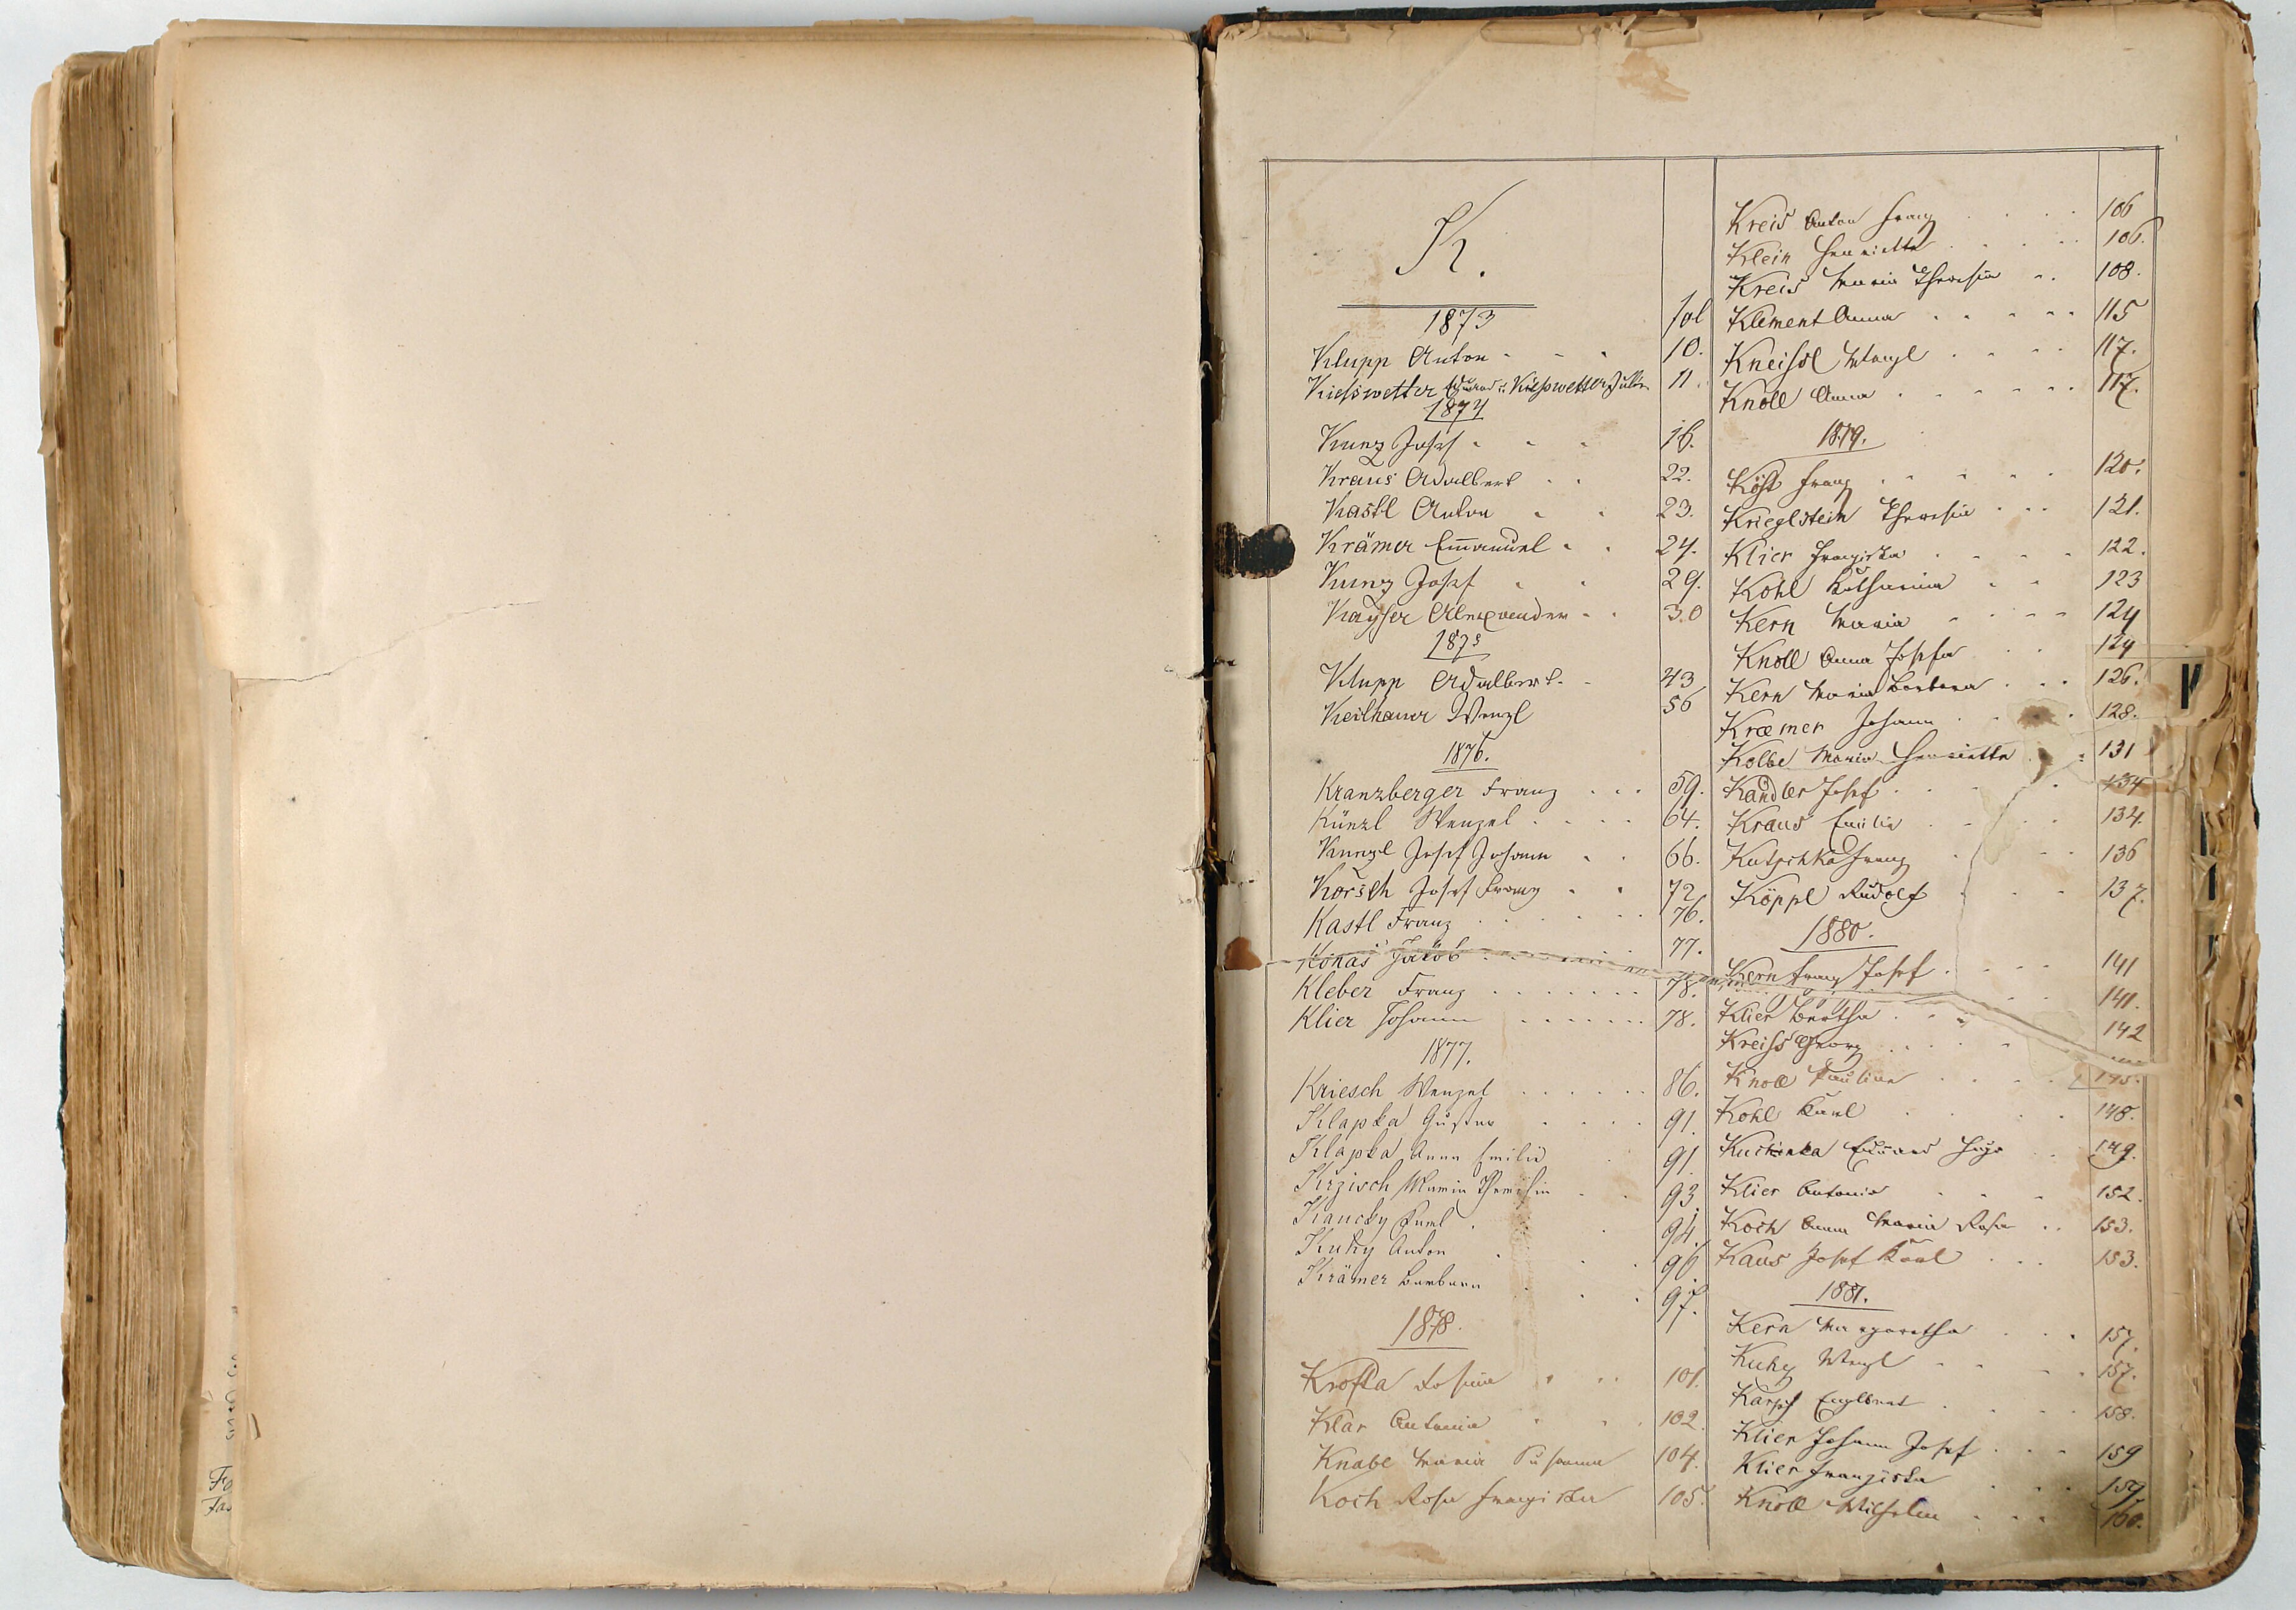 K.
1873
fol
Klupp Anton 10.
Kiesswetter Eduard u. Kiesswetter 11.
1874
Kunz Josef 16.
Kraus Adalbert 22.
Kastl Anton 23.
Krämer Emanuel 24.
Kunz Josef 29.
Kayser Alexander 30
1875
Klupp Adalbert 43
Keilhauer Wenzl 56
1876.
Kranzberger Franz 59.
Künzl Wenzel 64.
Kunzl Josef Johann 66.
Korsch Josef Franz 72
Kastl Franz 76.
Konas Jakob 77.
Kleber Franz 78.
Klier Johann 78.
1877.
Kriesch Wenzel 86.
Klapka Gustav 91.
Klapka Anna Emilie 91.
Kirzisch Maria Theresia 93.
Kaucky Karl 94.
Kuhy Anton 96.
Krämer Barbara 97.
1878.
Krofta Rosina 101.
Klar Antonia 102
Knabe Maria Susanna 104.
Koch Rosa Franziska 105.
Kreis Anton Franz 106
Klein Henriette 106.
Kreis Maria Theresia 108.
Klement Anna 115
Kneissl Wenzl 117.
Knoll Anna 117.
1879.
Köst Franz 120.
Krieglstein Theresia 121.
Klier Franziska 122.
Kohl Katharina 123
Kern Maria 124
Knoll Anna Josefa 124
Kern Maria Barbara 126.
Kræmer Johann 128.
Kolbe Maria Henriette 131
Kandler Josef 134
Kraus Emilie 134.
Kutschka Franz 136
Köppl Rudolf 137.
1880.
Kern Franz Josef 141
141.
Klier Bertha 142
Kreiss Georg
Knoll Pauline 145.
Kohl Karl 148.
Kuchinka Eduard Hugo 149.
Klier Antonia 152.
Koch Anna Maria Rosa 153.
Kaus Josef Karl 153.
1881.
Kern Margaretha 157.
Kuhy Wenzl 157.
Karpf Englbert 158.
Klier Johann Josef 159
Klier Franziska 159.
Knoll Wilhelm 160.
K